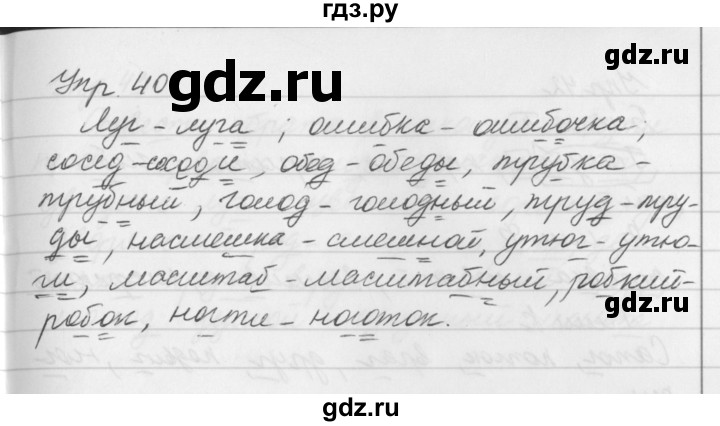 гдз.ру
gdz.ru
Упр. 40
gdz.ru
Луг - луга ; ошибка - ошибочка ;
сосед - соседи, обед - обеды, трубка -
трубный, голод - голодный, труд - тру-
ды, насмешка - смешной, утюг - утю-
ги, масштаб - масштабный, робкий -
робок, ногти - ноготок.
gdz.ru